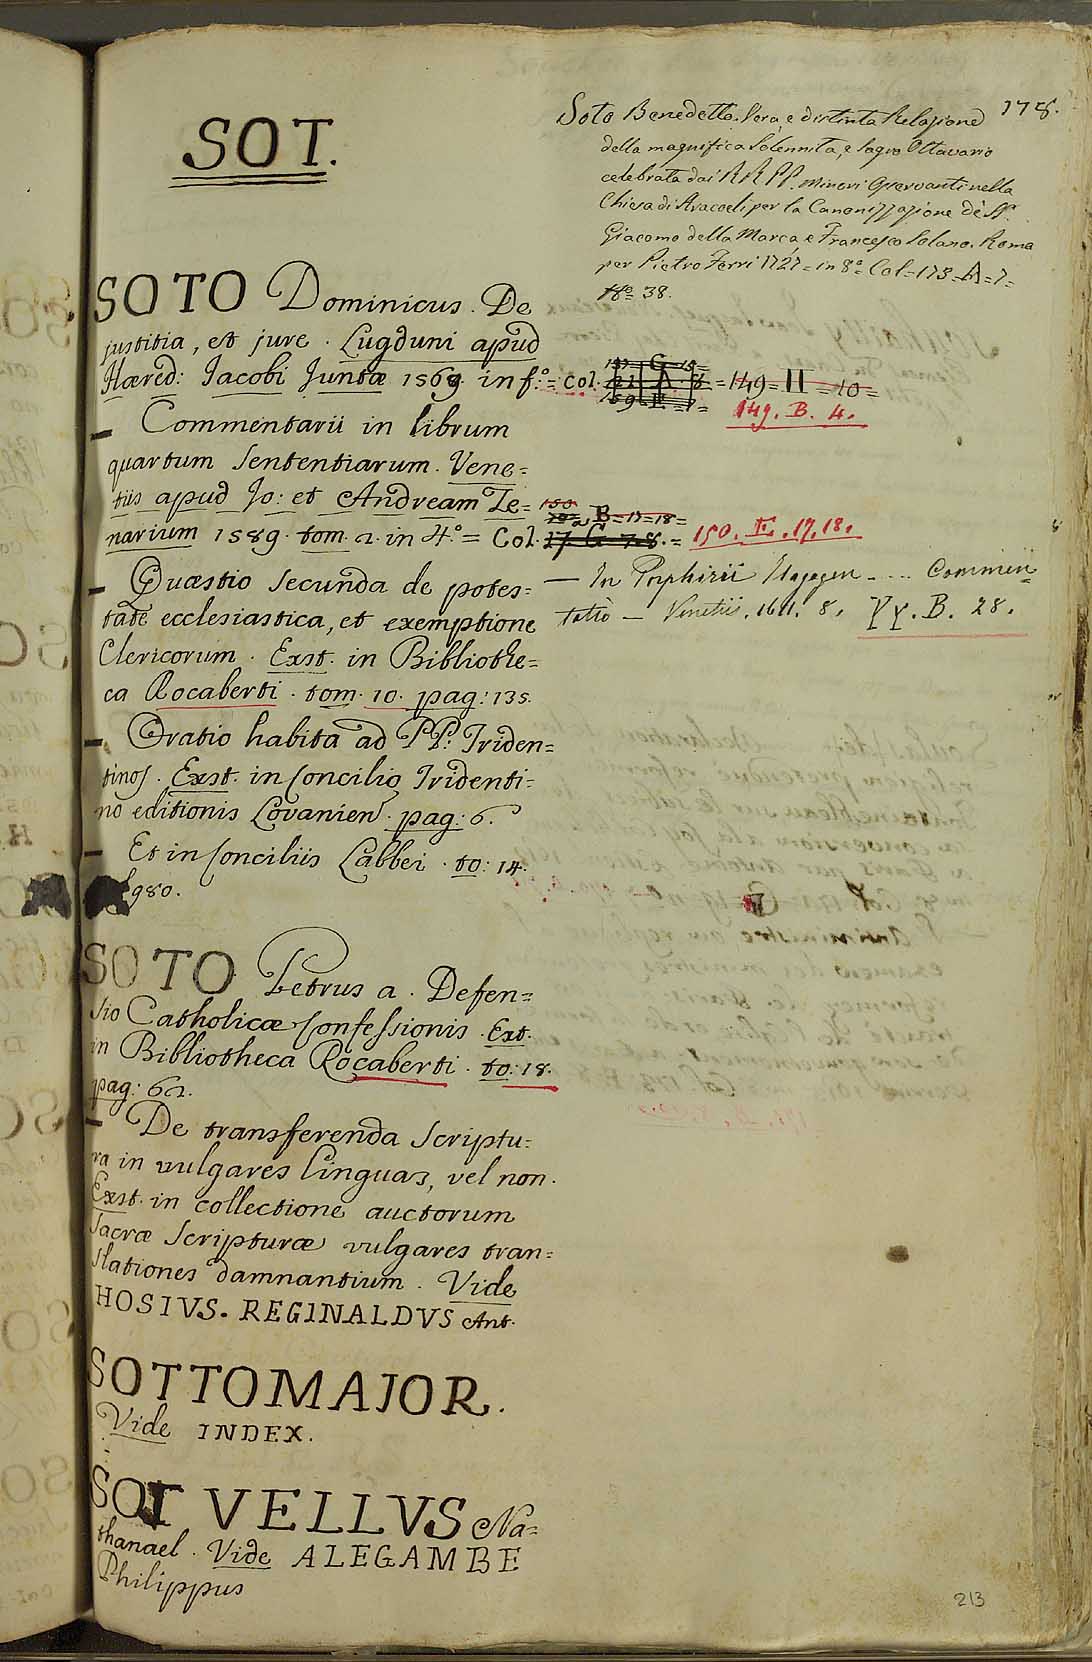 178.
SOT.
Soto Benedetto. Vera e distinta Relazione
della magnifica Solennità, e Sagro Ottavario
celebrata dai RR PP. Minori Osservanti nella
Chiesa di Aracoeli per la Canonizzazione de SS.
Giacomo della Marca, e Francesco Solano. Roma
per Pietro Ferri 1727 = in 8.º Col = 173 = A = 7 =
38.
SOTO Dominicus. De
justitia, et jure. Lugduni apud
Hæred: Jacobi Juntæ 1569. in f.º = Col.
= 149 = H = 10 =
149. B. 4.
– Commentarii in librum
quartum Sententiarum. Vene=
tiis apud Jo: et Andream Ze=
narium 1589. tom. 2. in 4.º = Col.
150
B = 17 = 18 =
17. G. 7. 8. =
150. E. 17. 18.
– In Porphirii Isagogen ... Commen
tatio – Venetiis. 1611. 8. YY. B. 28.
– Quæstio secunda de potes=
tate ecclesiastica, et exemptione
Clericorum. Exst. in Bibliothe=
ca Rocaberti. tom. 10. pag: 135.
– Oratio habita ad PP: Triden=
tinos. Exst. in Concilio Tridenti=
no editionis Lovanien. pag: 6.
– Et in Conciliis Labbei. to: 14.
980.
SOTO Petrus a. Defen=
sio Catholicæ Confessionis. Ext.
in Bibliotheca Rocaberti. to: 18.
pag: 62.
– De transferenda Scriptu=
ra in vulgares linguas, vel non.
Exst. in collectione auctorum
Sacræ Scripturæ vulgares tran=
slationes damnantium. Vide
HOSIVS. REGINALDVS Ant.
SOTTOMAJOR.
Vide INDEX.
SOTVELLVS Na=
thanael. Vide ALEGAMBE
Philippus
213